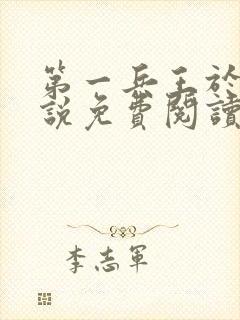 第一兵王於
說免費閱讀
李志軍